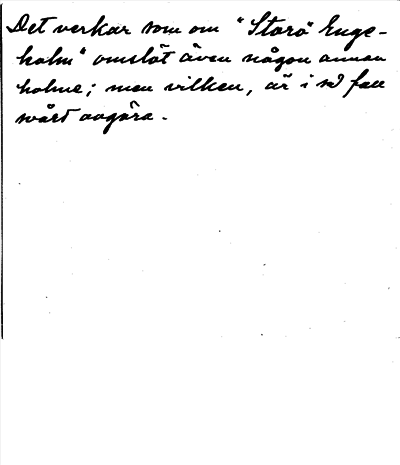 Det verkar som om "Storö Enge-
holm" omslöt även någon annan
holme; men vilken, är i så fall
svårt avgöra.